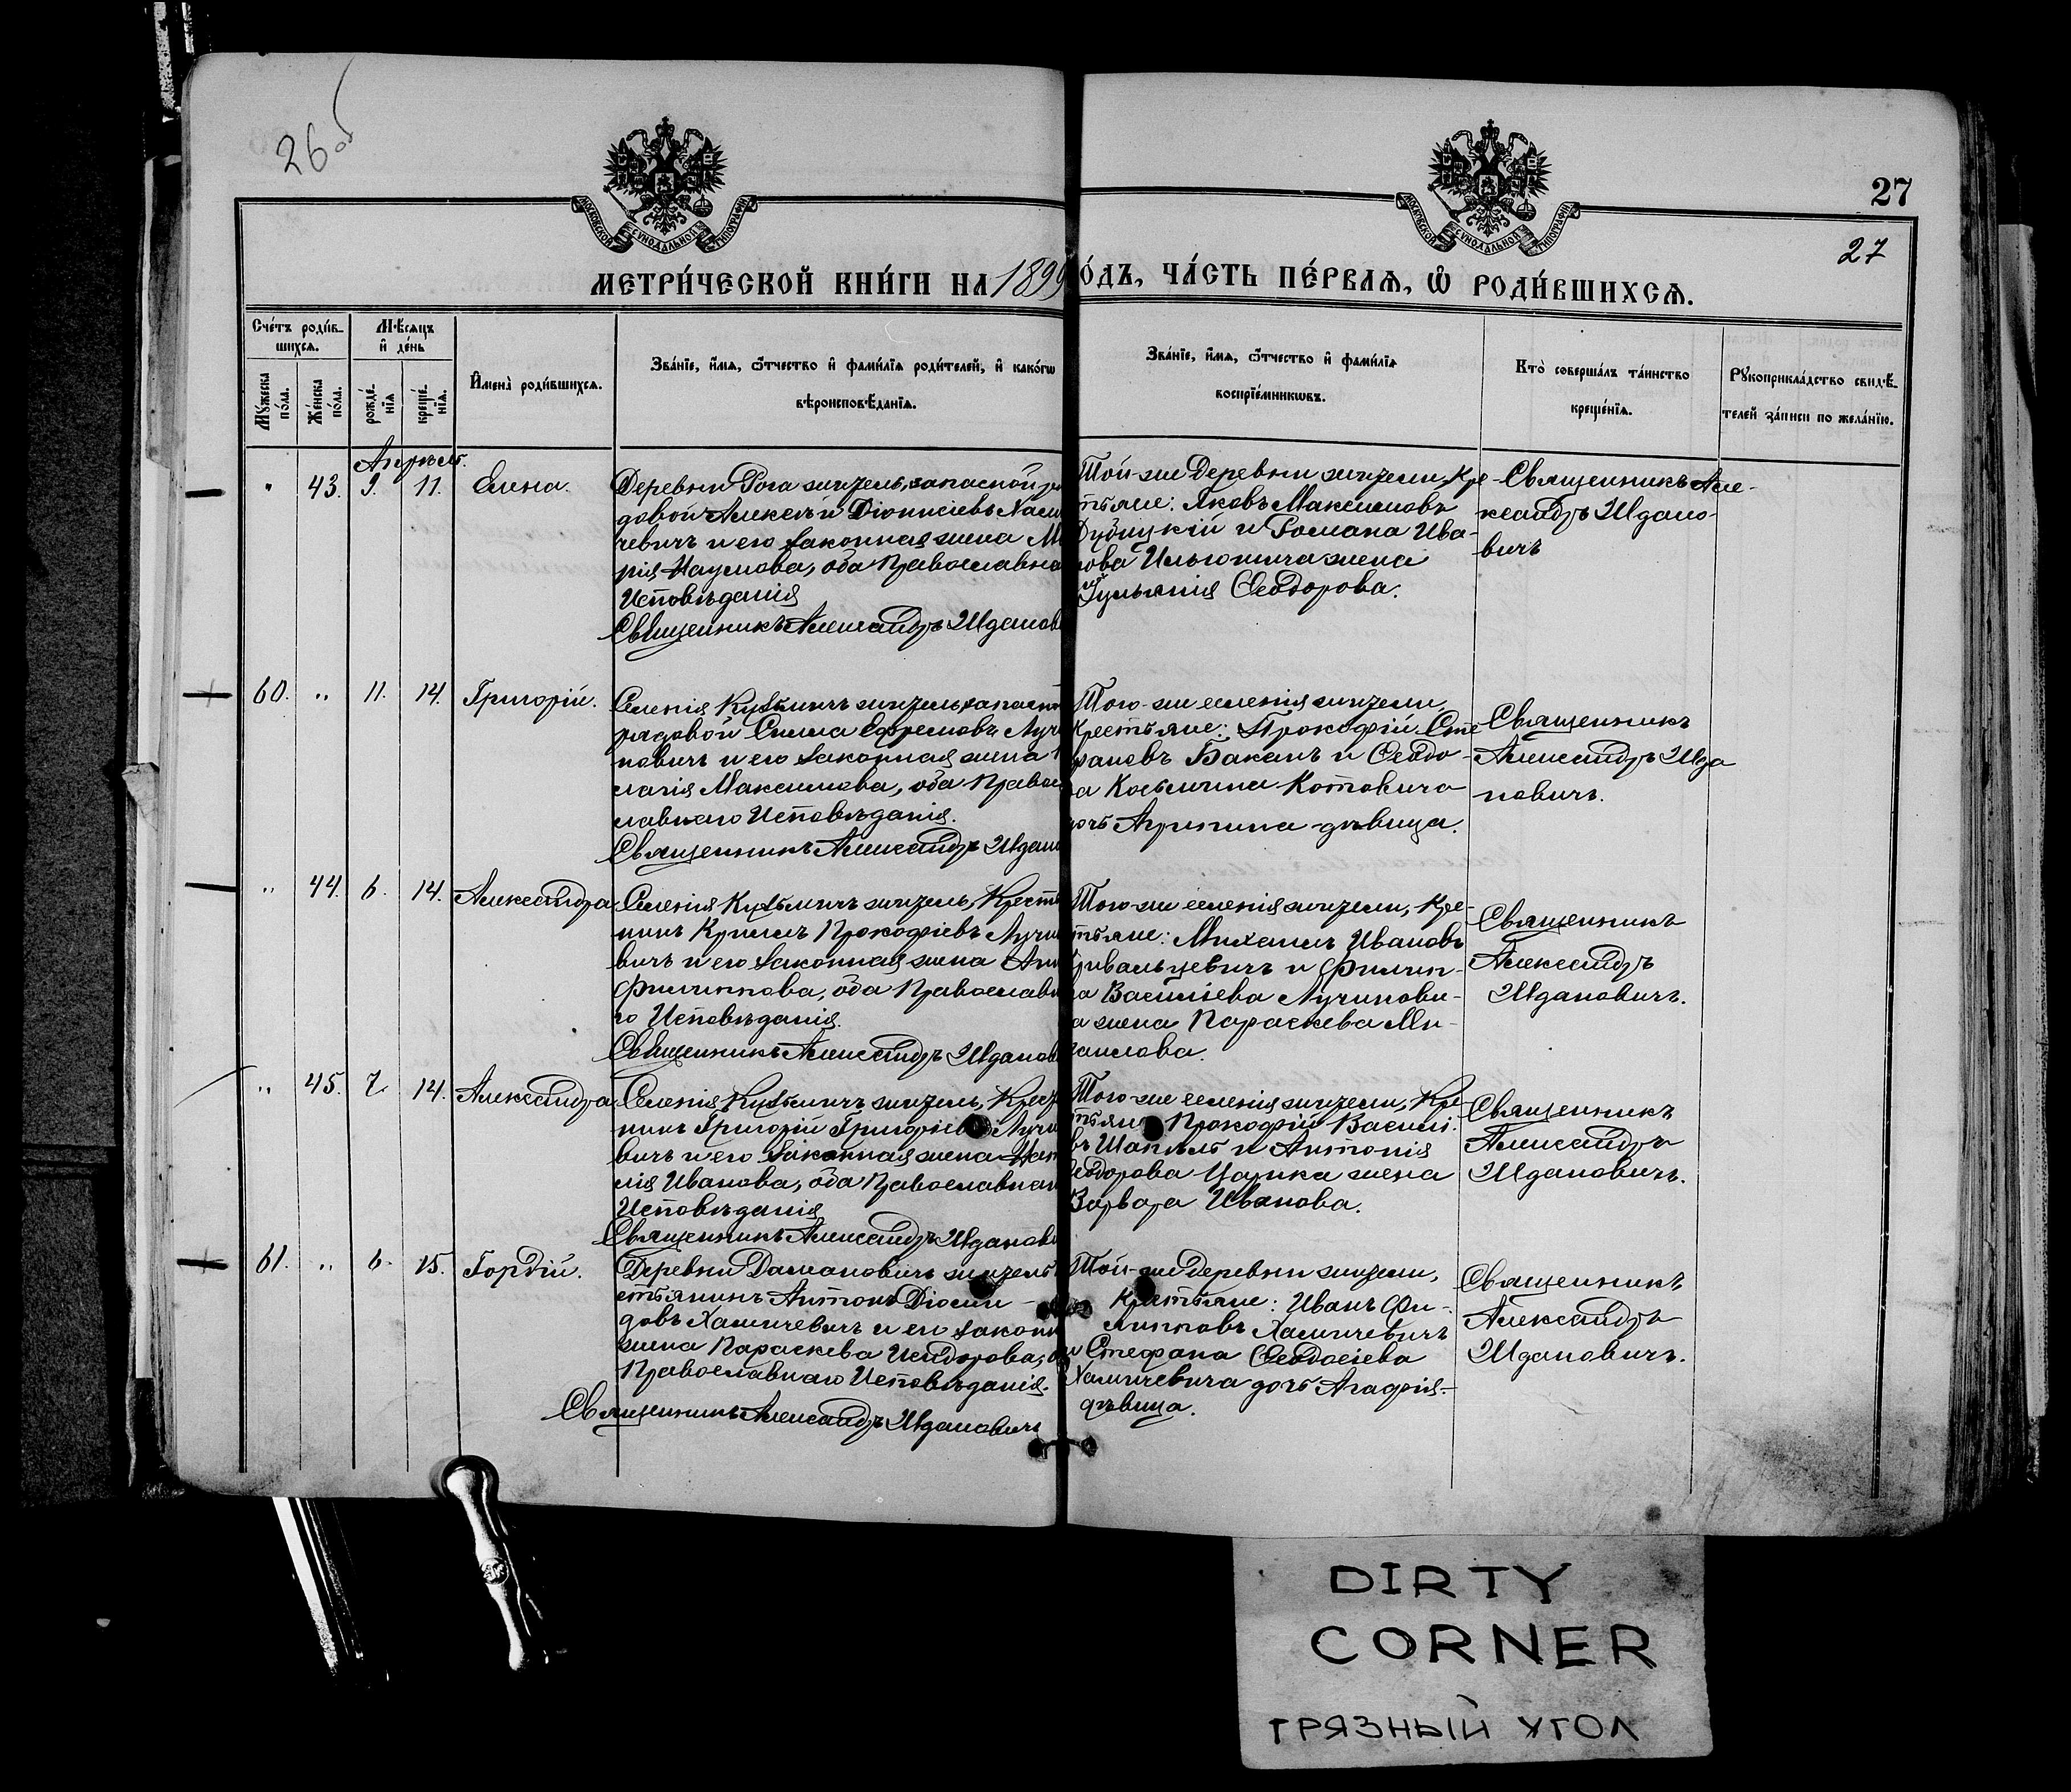 26 об
27
27
МОСКОВСКОЙ СѴНОДАЛЬНОЙ ТИПОГРАФІИ
МОСКОВСКОЙ СѴНОДАЛЬНОЙ ТИПОГРАФІИ
МЕТРИ́ЧЕСКОЙ КНИ́ГИ НА 1899
О́ДЪ, ЧА́СТЬ ПЕ́РВАѦ, Ѡ РОДИ́ВШИХСѦ.
Сче́тъ роди́в-
шихсѧ.
Мѣ́сяцъ
и де́нь
Мꙋ́жеска
по́ла.
Же́нска
по́ла.
рожде́-
нїѧ
креще́-
нїѧ.
Имена̀ роди́вшихсѧ.
Зва́нїе, и́мѧ, ѻ́тчество и фами́лїѧ роди́телей, и како́гѡ
вѣроисповѣ́данїѧ.
Зва́нїе, и́мѧ, ѻ́тчество и фами́лїѧ
воспрїе́мникѡвъ.
Кто̀ соверша́лъ та́инство
креще́нїѧ.
Рꙋкоприкла́дство свидѣ́-
телей за́писи по жела́нїю.
Апрѣль.
" 43. 9. 11. Елена.
Деревни Рога житель, запасной ря
довой Алексѣй Діонисіевъ
чевичъ и его законная жена Ма
рія Наумова, оба Православна
Исповѣданія
Священникъ Александръ Ждано
Той-же деревни жители, Кре-
стьяне: Яковъ Максимовъ
Дубицкій и Романа Ива-
нова Ильючича жена
Іульянія Ѳеодорова.
Священникъ Але-
ксандръ Ждано-
вичъ
60. " 11. 14. Григорій.
Селенія Кузьмичъ житель, запасн
рядовой Сила Ефремовъ Лучи
новичъ и его законная жена
лагія Максимова, оба Правос
лавнаго Исповѣданія.
Священникъ Александръ Ждан
Того-же селенія жители,
Крестьяне: Прокофій Сте
фановъ Баканъ и Ѳеодо-
ра Косьмина Котовича
дочь Агрипина-дѣвица.
Священникъ
Александръ Жда
новичъ.
" 44. 6. 14. Александра
Селенія Кузьмичъ житель, Кресть
нинъ Кириллъ Прокофіевъ Лучи
вичъ и его законная жена Ан
Филиппова, оба Православн
го Исповѣданія.
Священникъ Александръ Жданов
Того-же селенія жители, Кре-
стьяне: Михаилъ Ивановъ
и Филип-
па Василіева Лучинови-
ча жена Параскева Ми-
хаилова.
Священникъ
Александръ
Ждановичъ.
" 45. 7. 14. Александра
Селенія Кузьмичъ житель, Крест
нинъ Григорій Григоріевъ Лучи
вичъ и его законная жена Ната
лія Иванова, оба Православнаг
Исповѣданія
Священникъ Александръ Жданови
Того-же селенія жители, Кре
стьяне Прокофій Василі-
въ и Антонія
Ѳеодорова Царика жена
Варвара Иванова.
Священникъ
Александръ
Ждановичъ.
61. " 6. 15. Гордій.
Деревни Дамановичъ житель
естьянинъ Антонъ Діоми-
довъ Халичевичъ и его законн
жена Параскева Исидорова, о
Православнаго Исповѣданія.
Священникъ Александръ Ждановичъ
Той-же деревни жители,
Крестьяне: Иванъ Фи-
липповъ Халичевичъ
и Стефана Ѳеодосіева
Халичевича дочь Агафія-
дѣвица.
Священникъ
Александръ
Ждановичъ.
DIRTY
CORNER
ГРЯЗНЫЙ УГОЛ